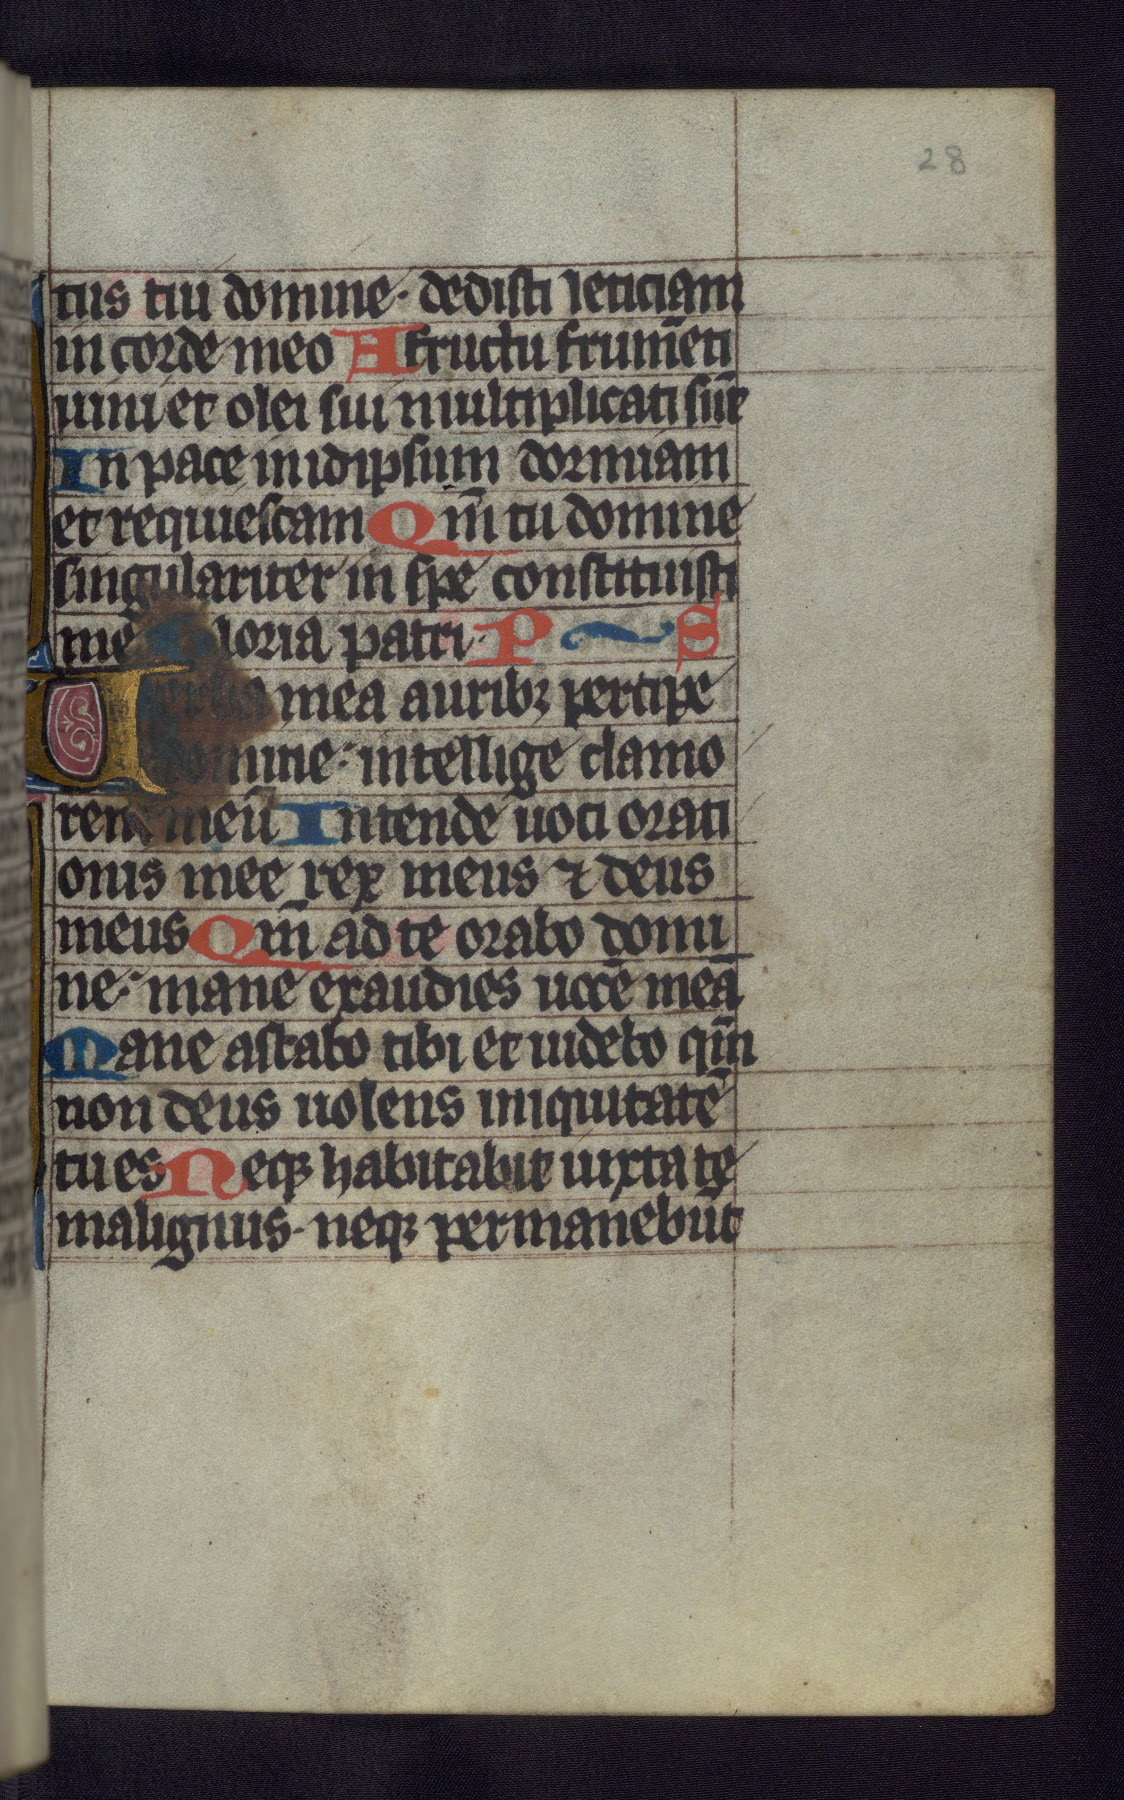 28
tus tui domine· dedisti leticiam
in corde meo A fructu frum̄eti
uini et olei sui multiplicati sūt
In pace in idipsum dormiam
et requiescam Qm̄ tu domine
singulariter in spe constituisti
me Gloria patri· P S
mea auribꝫ percipe
domine· intellige clamo
rem meū Intende uoci orati
onis mee rex meus ⁊ deus
meus Qm̄ ad te orabo domi
ne· mane exaudies uocē meā
Mane astabo tibi et uidebo qm̄
non deus uolens iniquitatē
tu es Neqꝫ habitabit iuxta te
malignus· neqꝫ permanebūt